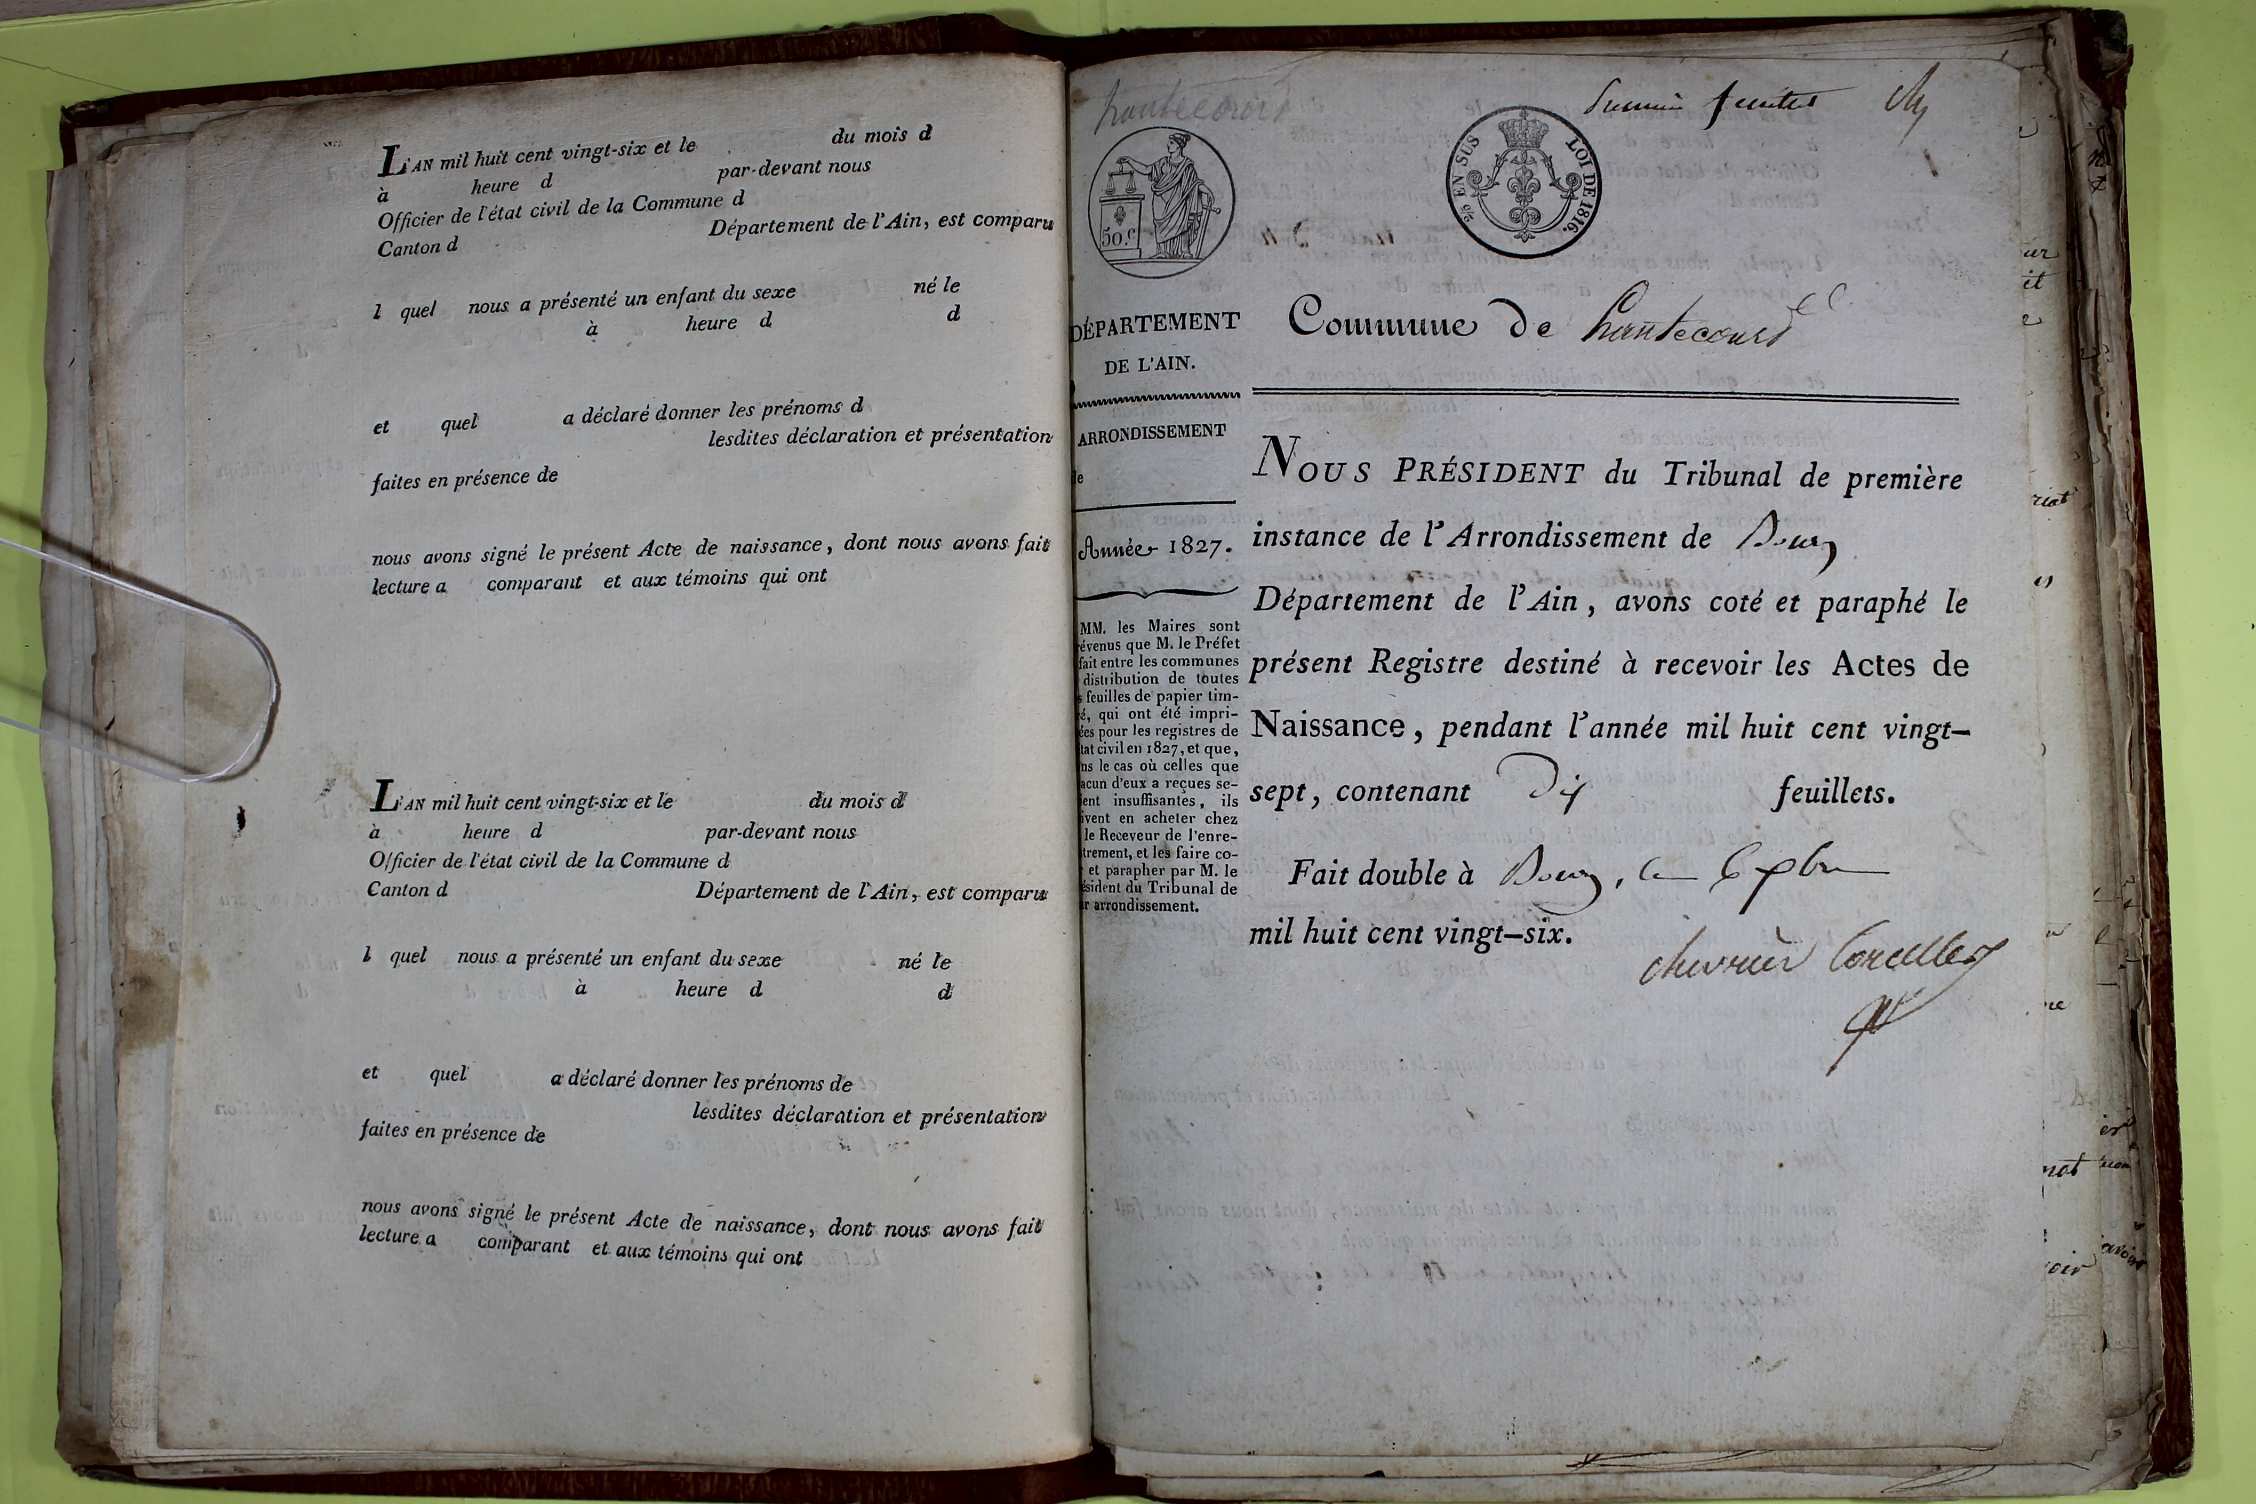 L'AN mil huit cent vingt-six et le du mois d
à heure d par-devant nous
Officier de l'état civil de la Commune d
Canton d Département de l'Ain, est comparu
l quel nous a présenté un enfant du sexe né le
à heure d d
et quel a déclaré donner les prénoms d
lesdites déclaration et présentation
faites en présence de
nous avons signé le présent Acte de naissance, dont nous avons fait
lecture a comparant et aux témoins qui ont
L'AN mil huit cent vingt-six et le du mois d
à heure d par-devant nous
Officier de l'état civil de la Commune d
Canton d Département de l'Ain, est comparu
l quel nous a présenté un enfant du sexe né le
à heure d d
et quel a déclaré donner les prénoms de
lesdites déclaration et présentation
faites en présence de
nous avons signé le présent Acte de naissance, dont nous avons fait
lecture a comparant et aux témoins qui ont
hautecourt
50.c
EN SUS LOI DE 1816.
DÉPARTEMENT
DE L'AIN.
ARRONDISSEMENT
Année 1827.
MM. les Maires sont
évenus que M. le Préfet
fait entre les communes
distribution de toutes
s feuilles de papier tim-
é, qui ont été impri-
ées pour les registres de
tat civil en 1827, et que,
ns le cas où celles que
acun d'eux a reçues se-
ient insuffisantes, ils
ivent en acheter chez
le Receveur de l'enre-
trement, et les faire co-
r et parapher par M. le
ésident du Tribunal de
ur arrondissement.
Commune de hautecourt
NOUS PRÉSIDENT du Tribunal de première
instance de l'Arrondissement de Bourg
Département de l'Ain, avons coté et paraphé le
présent Registre destiné à recevoir les Actes de
Naissance, pendant l'année mil huit cent vingt-
sept, contenant Dix feuillets.
Fait double à Bourg, le 6 xbre
mil huit cent vingt-six.
chevrier Corcelles